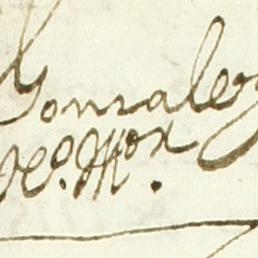 Gonzalez
Xº. Mᵒʳ.